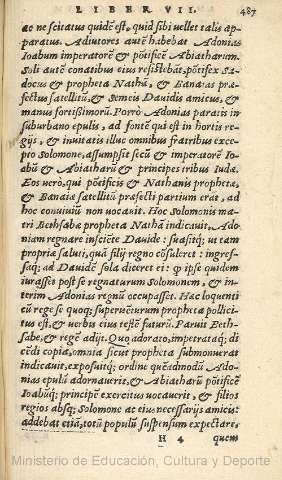 LIBER VII. 487
ac ne scitatus quidẽ est, quid sibi vellet talis ap-
paratus. Adiutores autẽ habebat Adonias
Ioabum imperatorẽ & põtificẽ Abiatharum.
Soli autẽ conatibus eius resistebãt, põtifex Sa-
docus & propheta Nathã, & Banaias præ-
fectus satellitũ, & Semeis Davidis amicus, &
manus fortißimorũ. Porrò Adonias paratis in
suburbano epulis, ad fontẽ qui est in hortis re-
gijs, & invitatis illuc omnibus fratribus exce-
pto Solomone, assumpsit secũ & imperatorẽ Io-
abũ & Abiatharũ & principes tribus Iudæ.
Eos vero, qui põtificis & Nathanis prophetæ,
& Banaiæ satellitũ præfecti partium erãt, ad
hoc convivium non vocavit. Hoc Solomonis ma-
tri Bethsabæ propheta Nathã indicavit, Ado-
niam regnare insciẽte Davide: suasitq; ut tam
propriæ saluti, quã filij regno cõsuleret: ingres-
saq; ad Davidẽ sola diceret ei: ꝙ ipse quidem
iurasset post se regnaturum Solomonem, & in-
terim Adonias regnũ occupasset. Hæc loquenti
cũ rege se quoq; superventurum propheta pollici-
tus est, & verbis eius testẽ futurũ. Paruit Beth-
sabe, & regẽ adijt. Quo adorato, impetrataq; di-
cẽdi copia, omnia sicut propheta submonuerat
indicavit, exposuitq; ordine quẽadmodũ Ado-
nias epulũ adornaverit, & Abiatharũ põtificẽ
Ioabũq; principẽ exercitus vocaverit, & filios
regios absq; Solomone ac eius necessarijs amicis:
addebat etiã, totũ populũ suspensum expectare,
H 4 quem
Ministerio de Educación, Cultura y Deporte